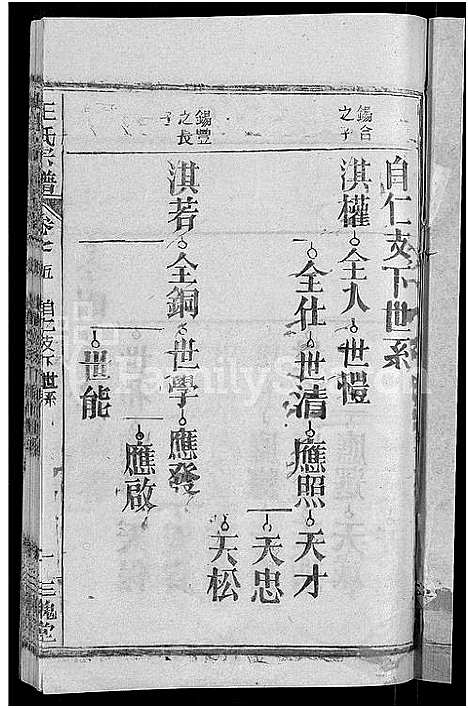 自仁支下世系
錫含之子
淇權 全人 世愷
全仕 世清 應照 天才
天忠
天松
錫豐之長子
淇若 全銅 世學 應發
應啟
世能
王氏宗譜 卷七五 自仁支下世系 一 三槐堂